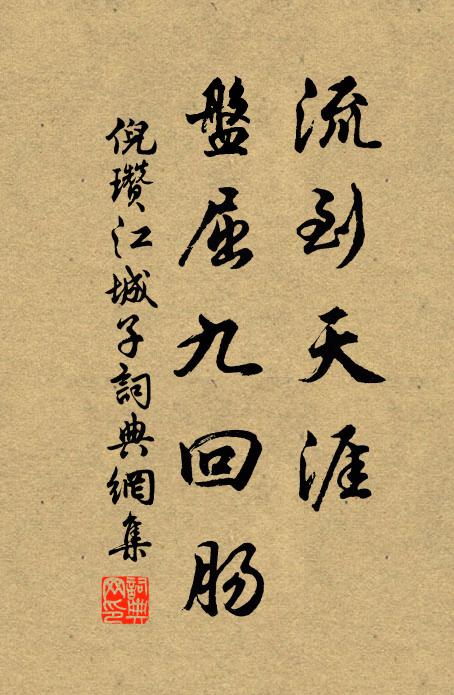 流到天涯
盤屈九回肠
倪瓚江城子詞典網集
詞典网印